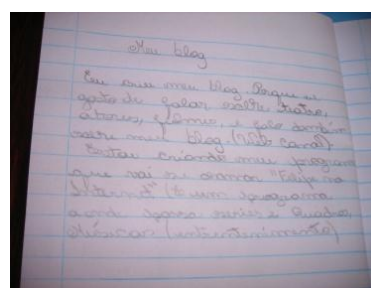 Meu blog
Eu meu blog. Porque eu
gosto de falar sobre teatro,
atores, filmes, e falo também
sobre meu blog. (Web canal)
Estou criando meu programa
que vai se chamar "Felipe na
Internet" (É um programa
aonde séries e Quadros,
Músicas (entretenimento)